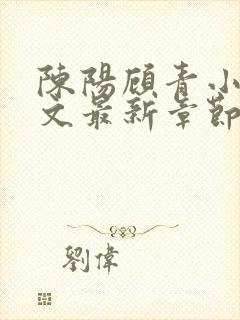 陳陽顧青小
文最新章節
劉偉